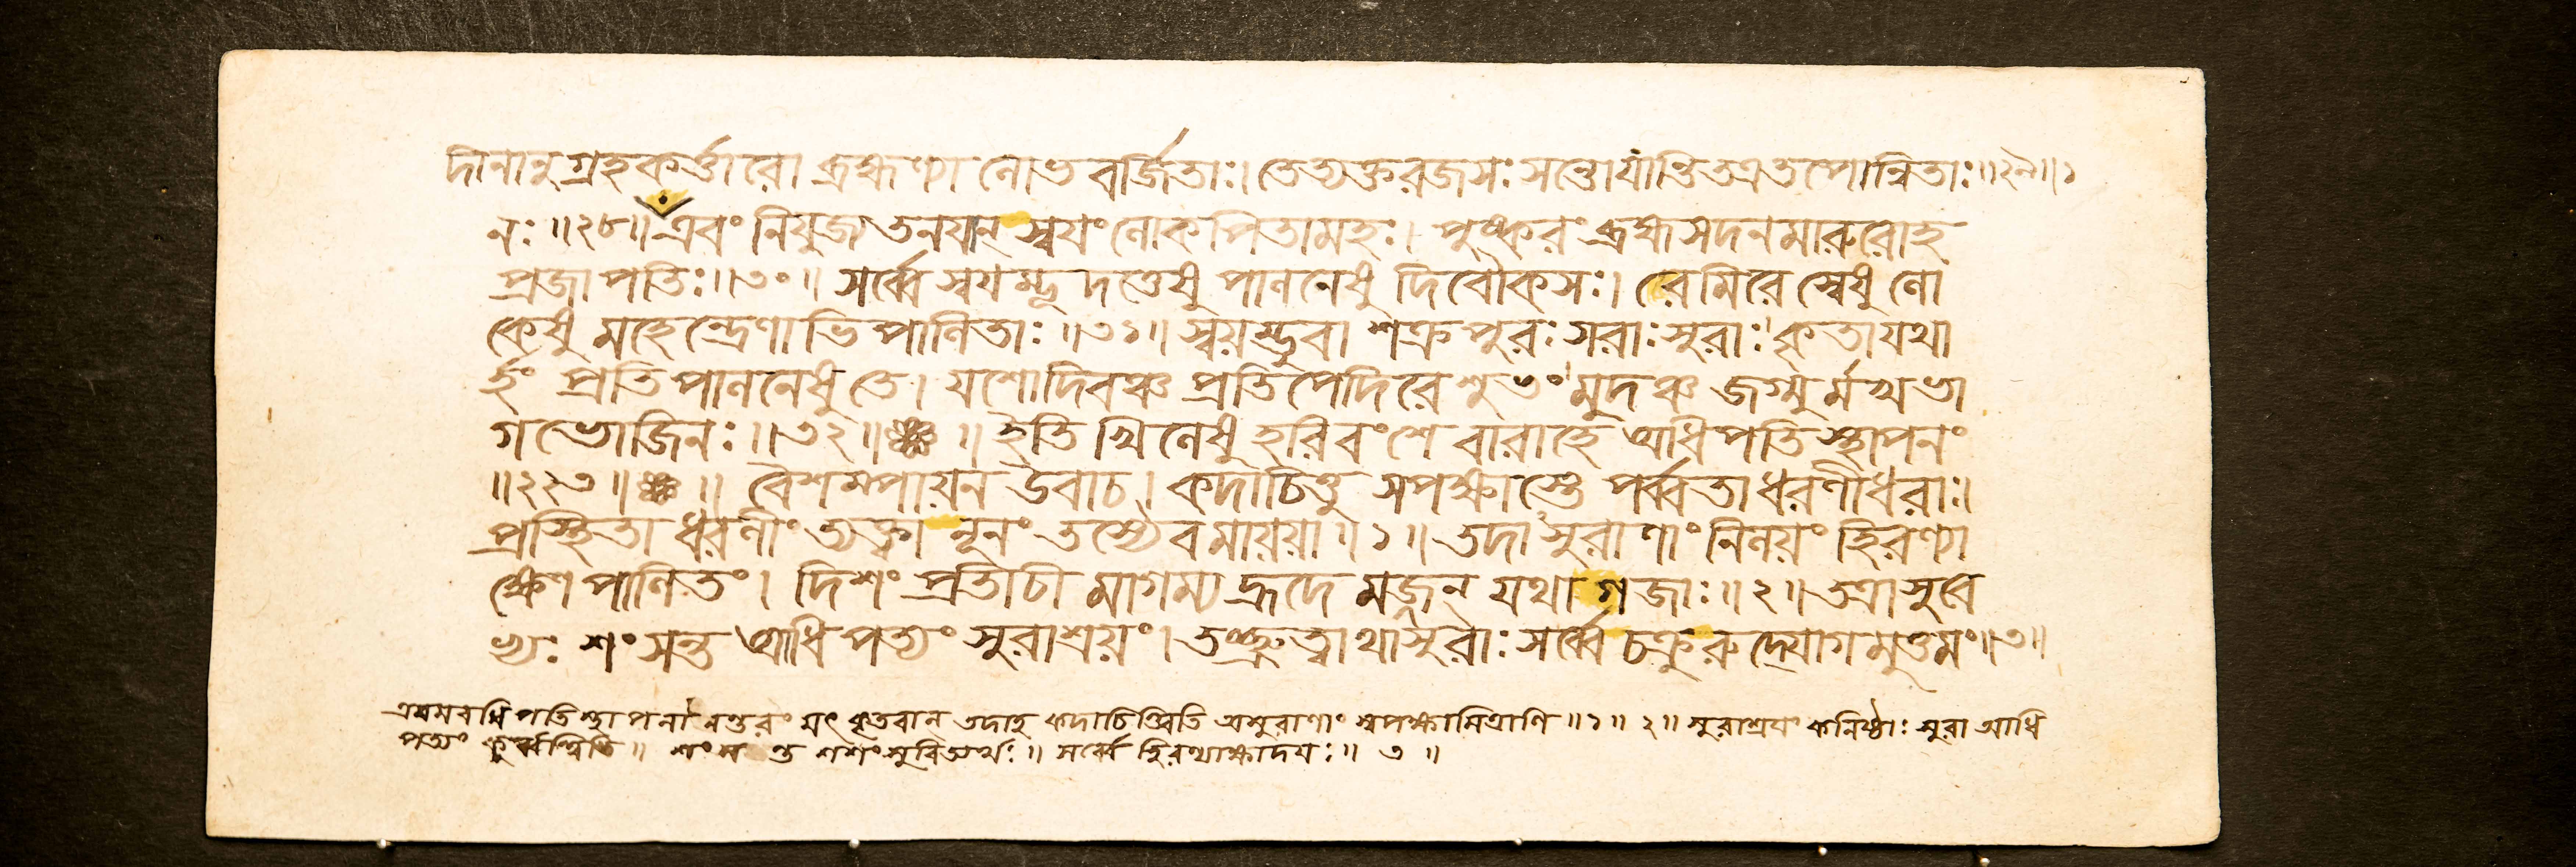 দীনানুগ্রহকর্ত্তারো ব্রহ্মণ্যা লোভবর্জিতাঃ। তেত্যক্তরজসঃ সন্তো যান্তি তত্র তপোন্বিতাঃ॥২৯॥১
নঃ॥২৮॥এবং নিযুজ্য তনয়ান্ স্বয়ং লোকপিতামহঃ। পুষ্করং ব্রহ্মসদনমারুরোহ
প্রজাপতিঃ॥৩০॥ সর্ব্বে স্বয়ম্ভূদত্তেষু পালনেষু দিবৌকসঃ। রেমিরে স্বেষু লো
কেষু মহেন্দ্রেণাভিপালিতাঃ॥৩১॥ স্বয়ম্ভুবা শক্রপুরঃসরাঃ সুরাঃ। কৃতা যথা
র্হং প্রতিপালনেষু তে। যশো দিবঞ্চ প্রতিপেদিরে শুভং। মুদঞ্চ জগ্মুর্মখভা
গভোজিনঃ॥৩২॥ ॥ ইতি খিলেষু হরিবংশে বারাহে আধিপতিস্থাপনং
॥২২৩॥ ॥ বৈশম্পায়ন উবাচ। কদাচিত্তু সপক্ষাস্তে পর্ব্বতা ধরণীধরাঃ।
প্রস্থিতা ধরণীং ত্যক্ত্বা নূনং তস্যৈব মায়য়া॥১॥ তদাসুরাণাং নিলয়ং হিরণ্যা
ক্ষেণ পালিতং। দিশং প্রতীচীমাগম্য হ্রদে মজ্জন্ যথা গজাঃ॥২॥ তত্রাসুরে
ভ্যঃ শংসন্ত আধিপত্যং সুরাশ্রয়ং। তচ্ছ্রুত্বাথাসুরাঃ সর্ব্বে চক্রুরুদ্যোগমুত্তমং॥৩॥
এবমবধিপতিস্থাপনানন্তরং যৎ কৃতবান্ তদাহ কদাচিত্ত্বিতি অসুরাণাং স্বপক্ষামিত্রাণি॥১॥ ২॥ সুরাশ্রয়ং কনিষ্ঠাঃ সুরা আধি
পত্যং কুর্ব্বন্তিতি॥ শংসন্ত শশংসুরিত্যর্থঃ॥ সর্ব্বে হিরণ্যাক্ষাদয়ঃ॥ ৩॥